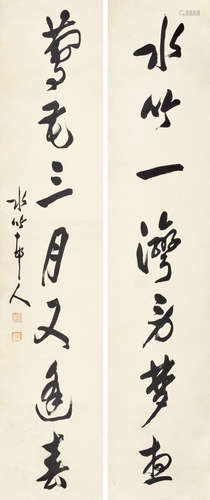 水竹一灣夢
鶯花三月又逢春
水竹邨人